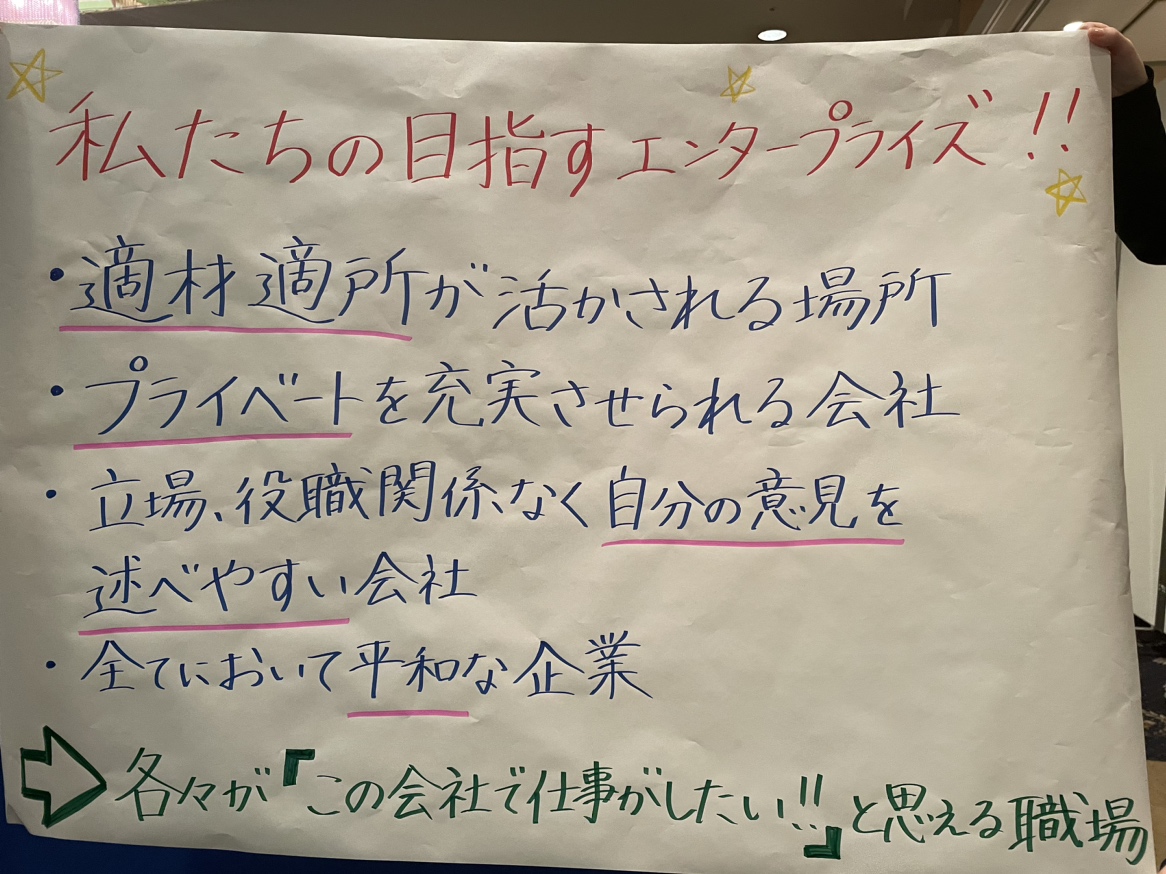 私たちの目指すエンタープライズ!!
・適材適所が活かされる場所
・プライベートを充実させられる会社
・立場、役職関係なく自分の意見を
述べやすい会社
・全てにおいて平和な企業
⇨各々が『この会社で仕事がしたい!!』と思える職場